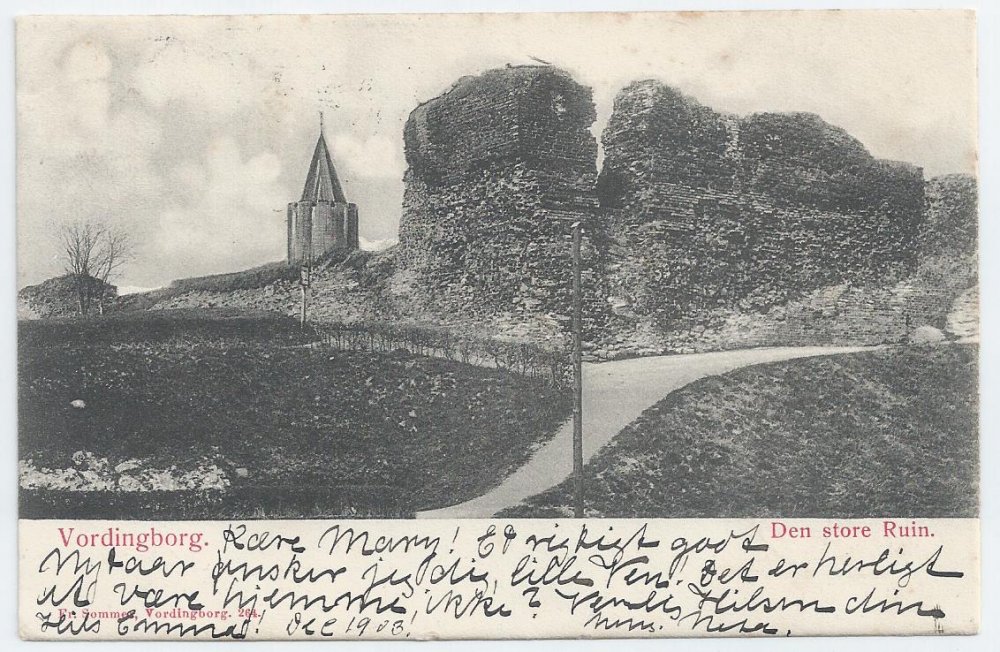 Vordingborg.
Den store Ruin.
Kære Mary! Et rigtigt godt
Nytaar ønsker jeg dig, lille Ven. Det er herligt
at være hjemme, ikke? Venlig Hilsen din
Fr. Sommer, Vordingborg. 264.
Hils Emmrad! Dec 1903!